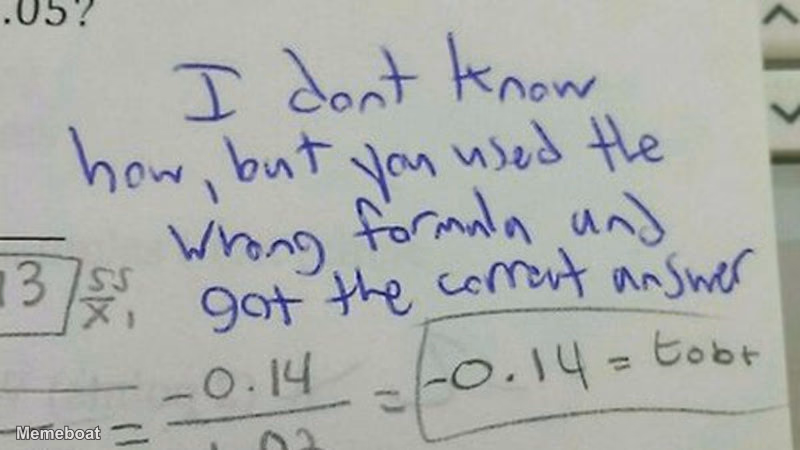 .05?
I dont know
how, but you used the
wrong formula and
got the correct answer
13 SS
X1
-0.14 = -0.14 = tobt
=
Memeboat